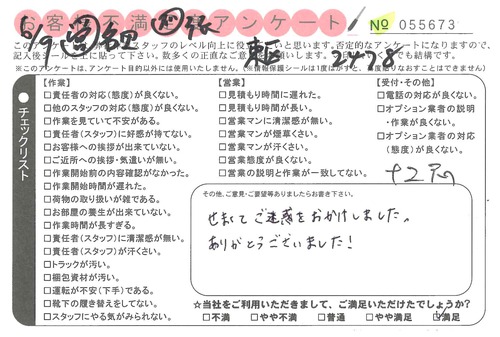 お客様不満足アンケート
No 055673
2478
記入後シールを上に貼って下さい。数多くの正直なご
※このアンケートは、アンケート目的以外には使用いたしません。
チェックリスト
【作業】
□責任者の対応(態度)が良くない。
□他のスタッフの対応(態度)が良くない。
□作業を見ていて不安がある。
□責任者(スタッフ)に好感が持てない。
□お客様への挨拶が出来ていない。
□ご近所への挨拶・気遣いが無い。
□作業開始前の内容確認がなかった。
□作業開始時間が遅れた。
□荷物の取り扱いが雑である。
□お部屋の養生が出来ていない。
□作業時間が長すぎる。
□責任者(スタッフ)に清潔感が無い。
□責任者(スタッフ)が汗くさい。
□トラックが汚い。
□梱包資材が汚い。
□運転が不安(下手)である。
□靴下の履き替えをしてない。
□スタッフにやる気がみられない。
【営業】
□見積もり時間に遅れた。
□見積もり時間が長い。
□営業マンに清潔感が無い。
□営業マンが煙草くさい。
□営業マンが汗くさい。
□営業態度が良くない。
□営業の説明と作業が一致してない。
【受付・その他】
□電話の対応が良くない。
□オプション業者の説明
・作業が良くない。
□オプション業者の対応
(態度)が良くない。
その他、ご意見・ご要望等ありましたらお書き下さい。
せまくてご迷惑をおかけしました。
ありがとうございました!
☆当社をご利用いただきまして、ご満足いただけたでしょうか?
□不満 □やや不満 □普通 □やや満足 □満足